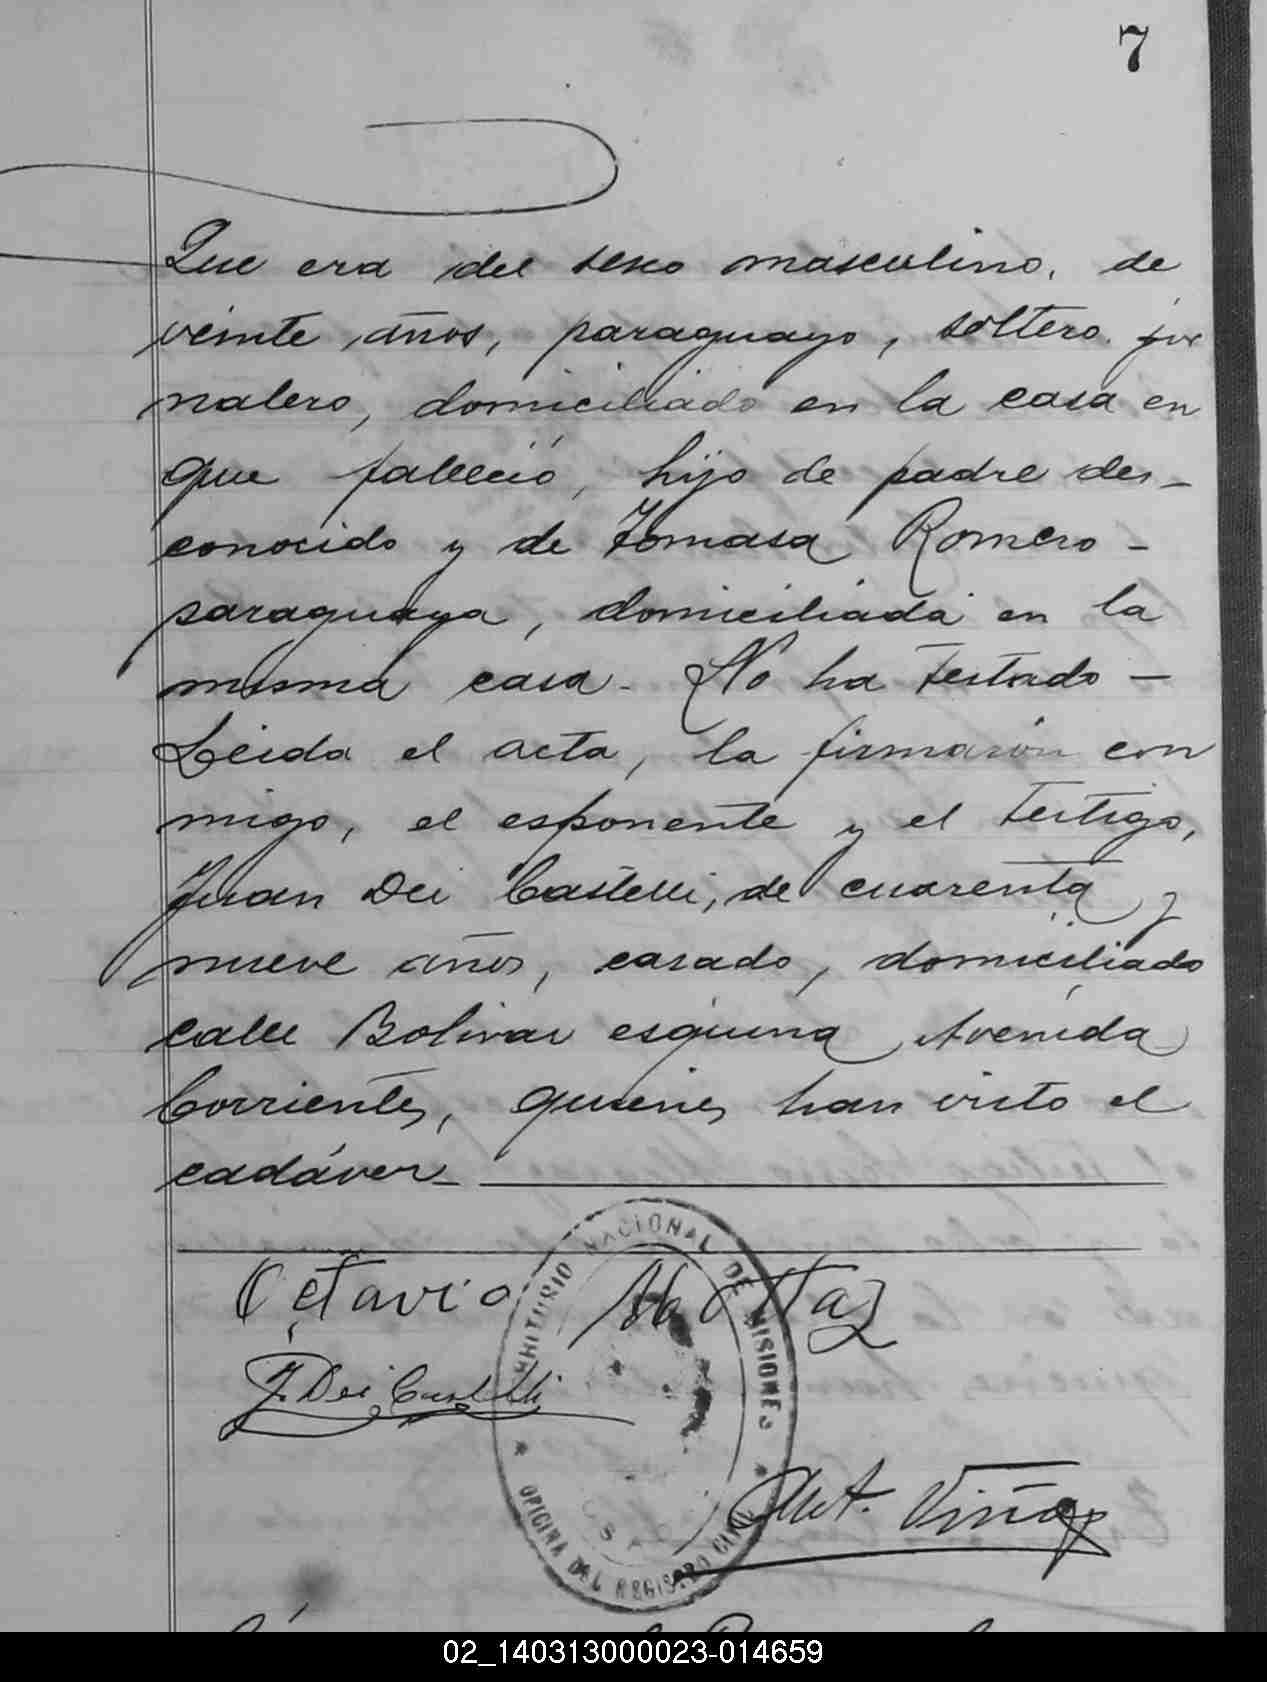 7
Que era del sexo masculino, de
veinte años, paraguayo, soltero, jor
nalero, domiciliado en la casa en
que falleció, hijo de padre des-
conocido y de Tomasa Romero -
paraguaya, domiciliada en la
misma casa. No ha testado -
Leida el acta, la firmaron con
migo, el esponente y el testigo,
Juan Dei Castelli, de cuarenta y
nueve años, casado, domiciliado
calle Bolivar esquina Avenida
Corrientes, quienes han visto el
cadáver
TERRITORIO NACIONAL DE MISIONES
Octavio
J. Dei Castelli
OFICINA DEL REGISTRO CIVIL
02_140313000023-014659